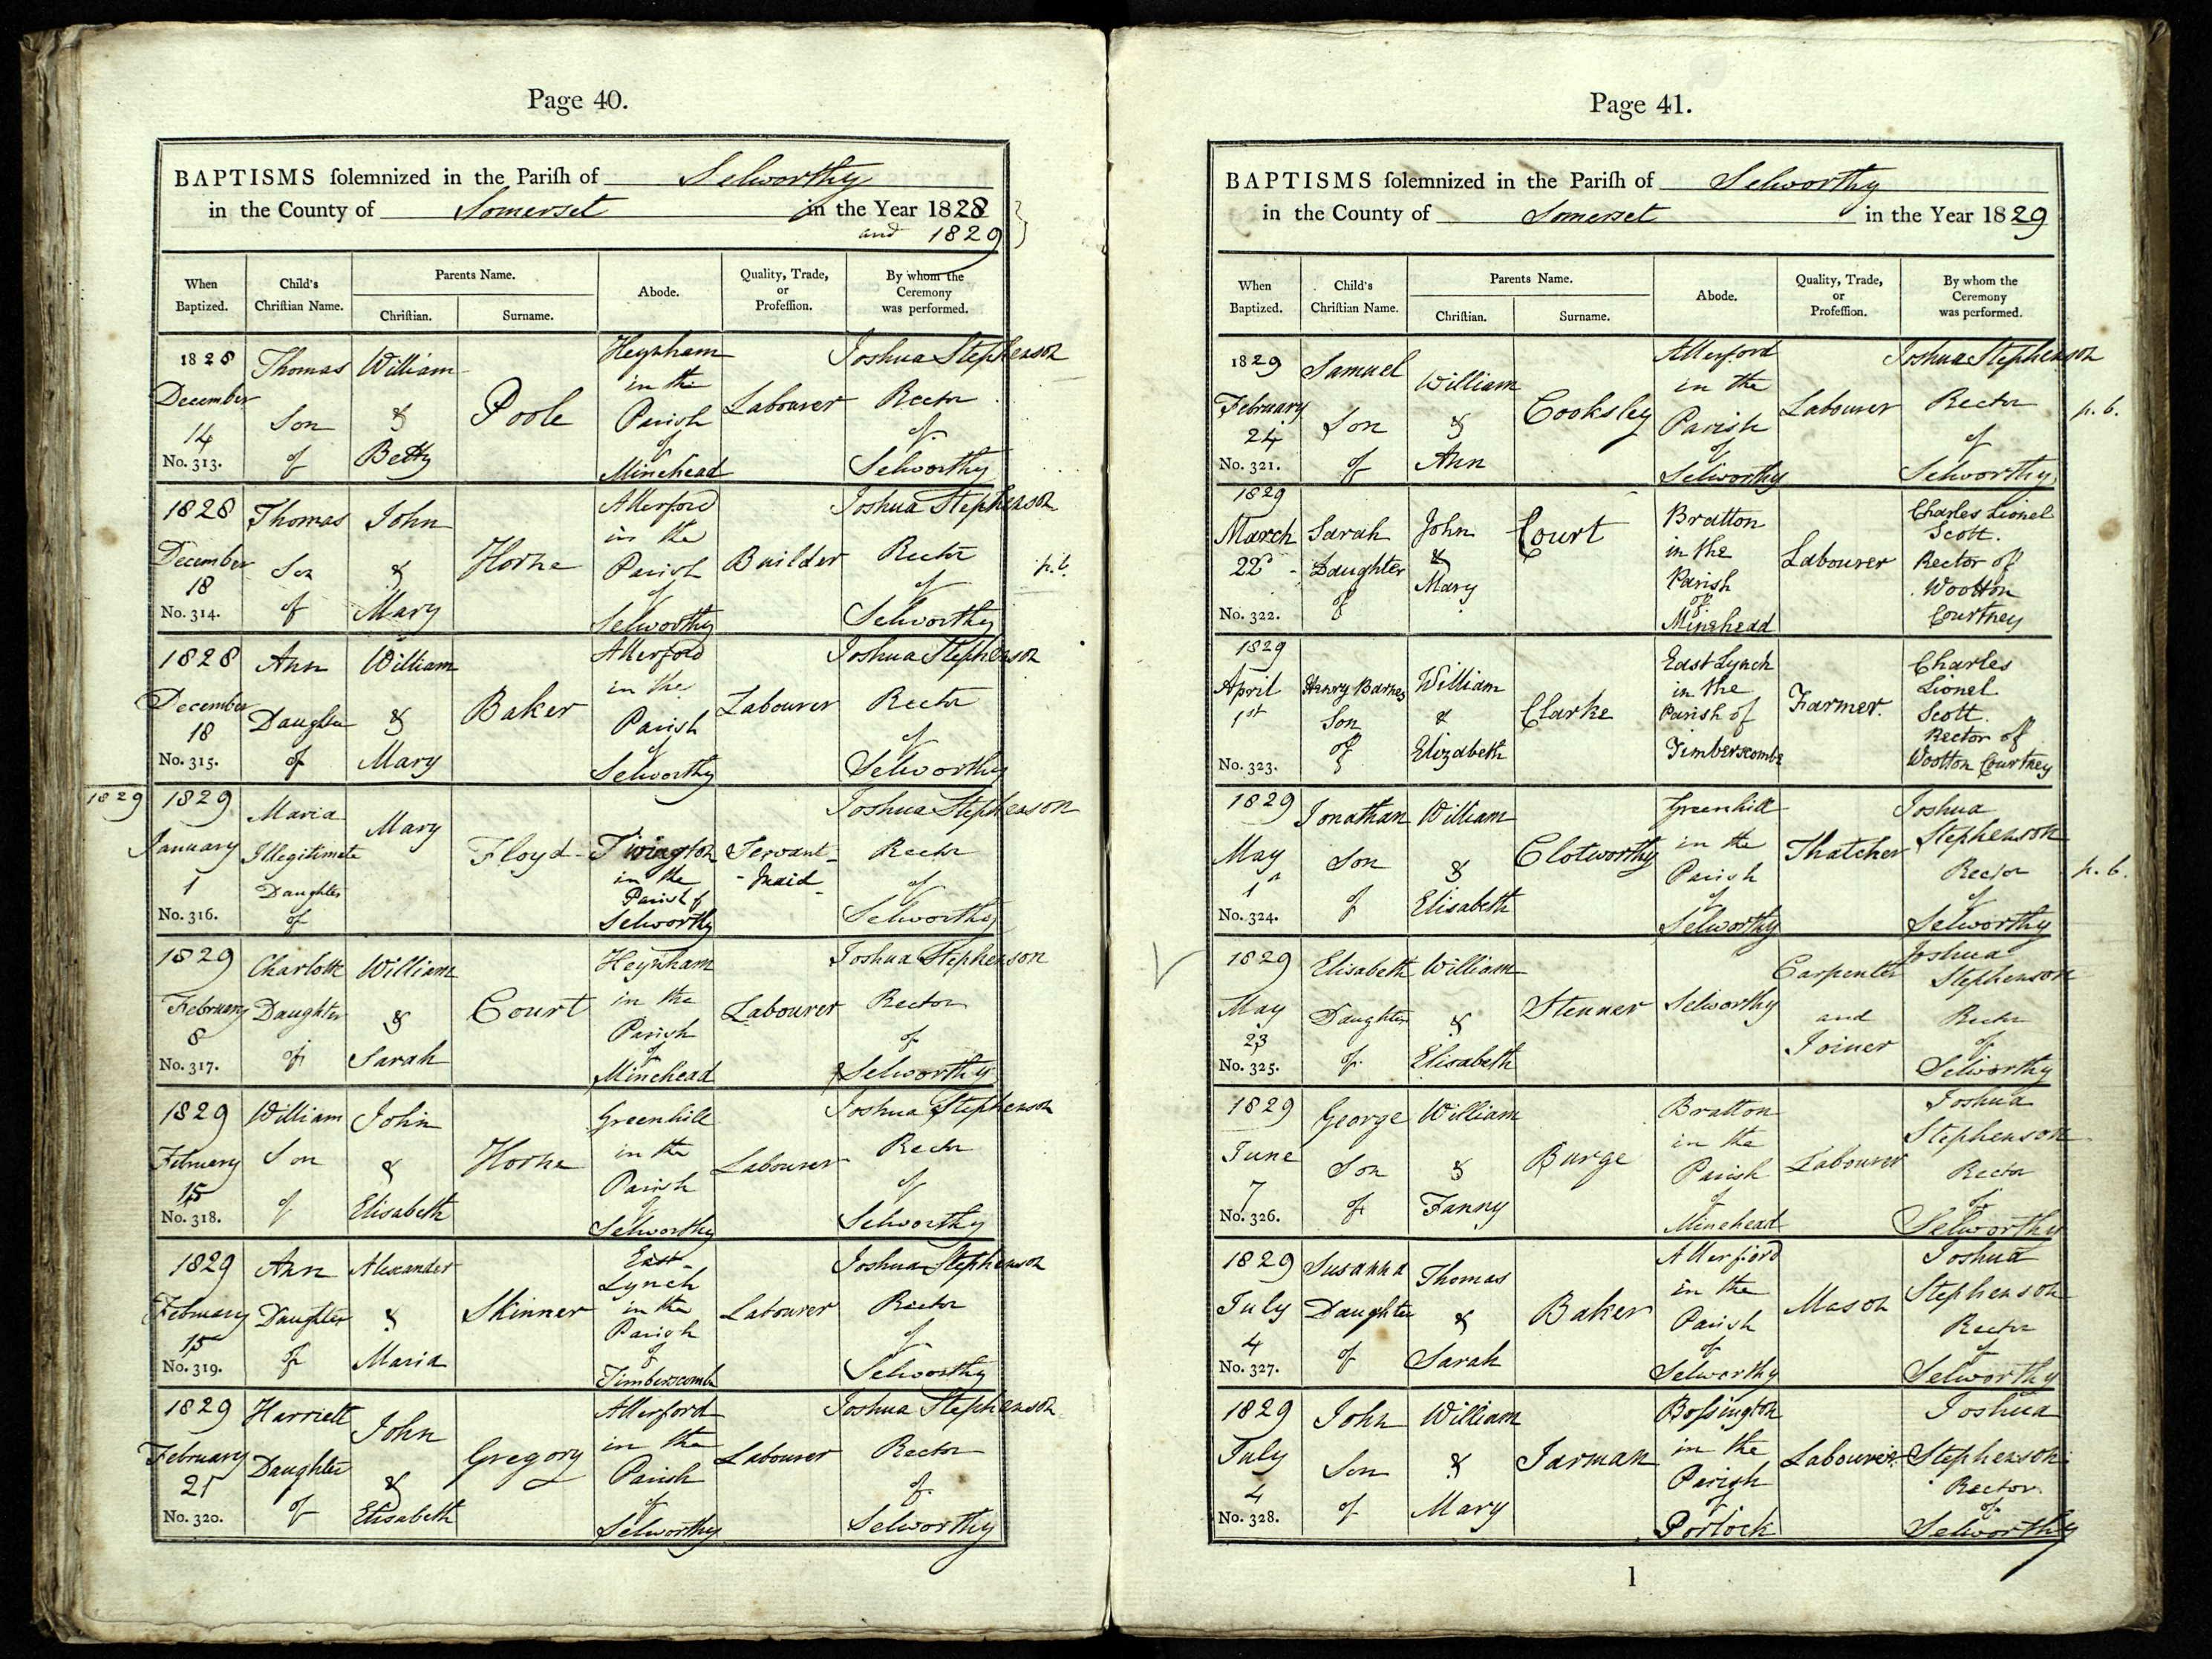 Page 40.
BAPTISMS ſolemnized in the Pariſh of Selworthy
in the County of Somerset in the Year 1828
and 1829
When Baptized.
Child's Chriſtian Name.
Parents Name.
Chriſtian.
Surname.
Abode.
Quality, Trade, or Profeſſion.
By whom the Ceremony was performed.
1828 December 14 No. 313.
Thomas Son of
William & Betty
Poole
in the Parish of Minehead
Labourer
Joshua Stephenson Rector of Selworthy
1828 December 18 No. 314.
Thomas Son of
John & Mary
Horne
Allerford in the Parish of Selworthy
Builder
Joshua Stephenson Rector of Selworthy
p. b.
1828 December 18 No. 315.
Ann Daughter of
William & Mary
Baker
Allerford in the Parish of Selworthy
Labourer
Joshua Stephenson Rector of Selworthy
1829
1829 January 1 No. 316.
Maria Illegitimate Daughter of
Mary
Floyd
Tivington in the Parish of Selworthy
Servant-Maid
Joshua Stephenson Rector of Selworthy
1829 February 8 No. 317.
Charlotte Daughter of
William & Sarah
Court
in the Parish of Minehead
Labourer
Joshua Stephenson Rector of Selworthy
1829 February 15 No. 318.
William Son of
John & Elisabeth
Horne
Greenhill in the Parish of Selworthy
Labourer
Joshua Stephenson Rector of Selworthy
1829 February 15 No. 319.
Ann Daughter of
Alexander & Maria
Skinner
East-Lynch in the Parish of Timberscomb
Labourer
Joshua Stephenson Rector of Selworthy
1829 February 21 No. 320.
Harriett Daughter of
John & Elisabeth
Gregory
Allerford in the Parish of Selworthy
Labourer
Joshua Stephenson Rector of Selworthy
Page 41.
BAPTISMS ſolemnized in the Pariſh of Selworthy
in the County of Somerset in the Year 1829
When Baptized.
Child's Chriſtian Name.
Parents Name.
Chriſtian.
Surname.
Abode.
Quality, Trade, or Profeſſion.
By whom the Ceremony was performed.
1829 February 24 No. 321.
Samuel Son of
William & Ann
Cooksley
Allerford in the Parish of Selworthy
Labourer
Joshua Stephenson Rector of Selworthy
p. b.
1829 March 22d No. 322.
Sarah Daughter of
John & Mary
Court
Bratton in the Parish of Minehead
Labourer
Charles Lionel Scott. Rector of Wootton Courtney
1829 April 1st No. 323.
Henry Barnes Son of
William & Elizabeth
Clarke
East Lynch in the Parish of Timberscombe
Farmer.
Charles Lionel Scott. Rector of Wootton Courtney
1829 May 1 No. 324.
Jonathan Son of
William & Elisabeth
Clotworthy
Greenhill in the Parish of Selworthy
Thatcher
Joshua Stephenson Rector of Selworthy
p. b.
1829 May 23 No. 325.
Elisabeth Daughter of
William & Elisabeth
Stenner
Selworthy
Carpenter and Joiner
Joshua Stephenson Rector of Selworthy
1829 June 7 No. 326.
George Son of
William & Fanny
Burge
Bratton in the Parish of Minehead
Labourer
Joshua Stephenson Rector of Selworthy
1829 July 4 No. 327.
Susanna Daughter of
Thomas & Sarah
Baker
Allerford in the Parish of Selworthy
Mason
Joshua Stephenson Rector of Selworthy
1829 July 4 No. 328.
John Son of
William & Mary
Jarman
Boſsington in the Parish of Porlock
Labourer
Joshua Stephenson Rector of Selworthy
1